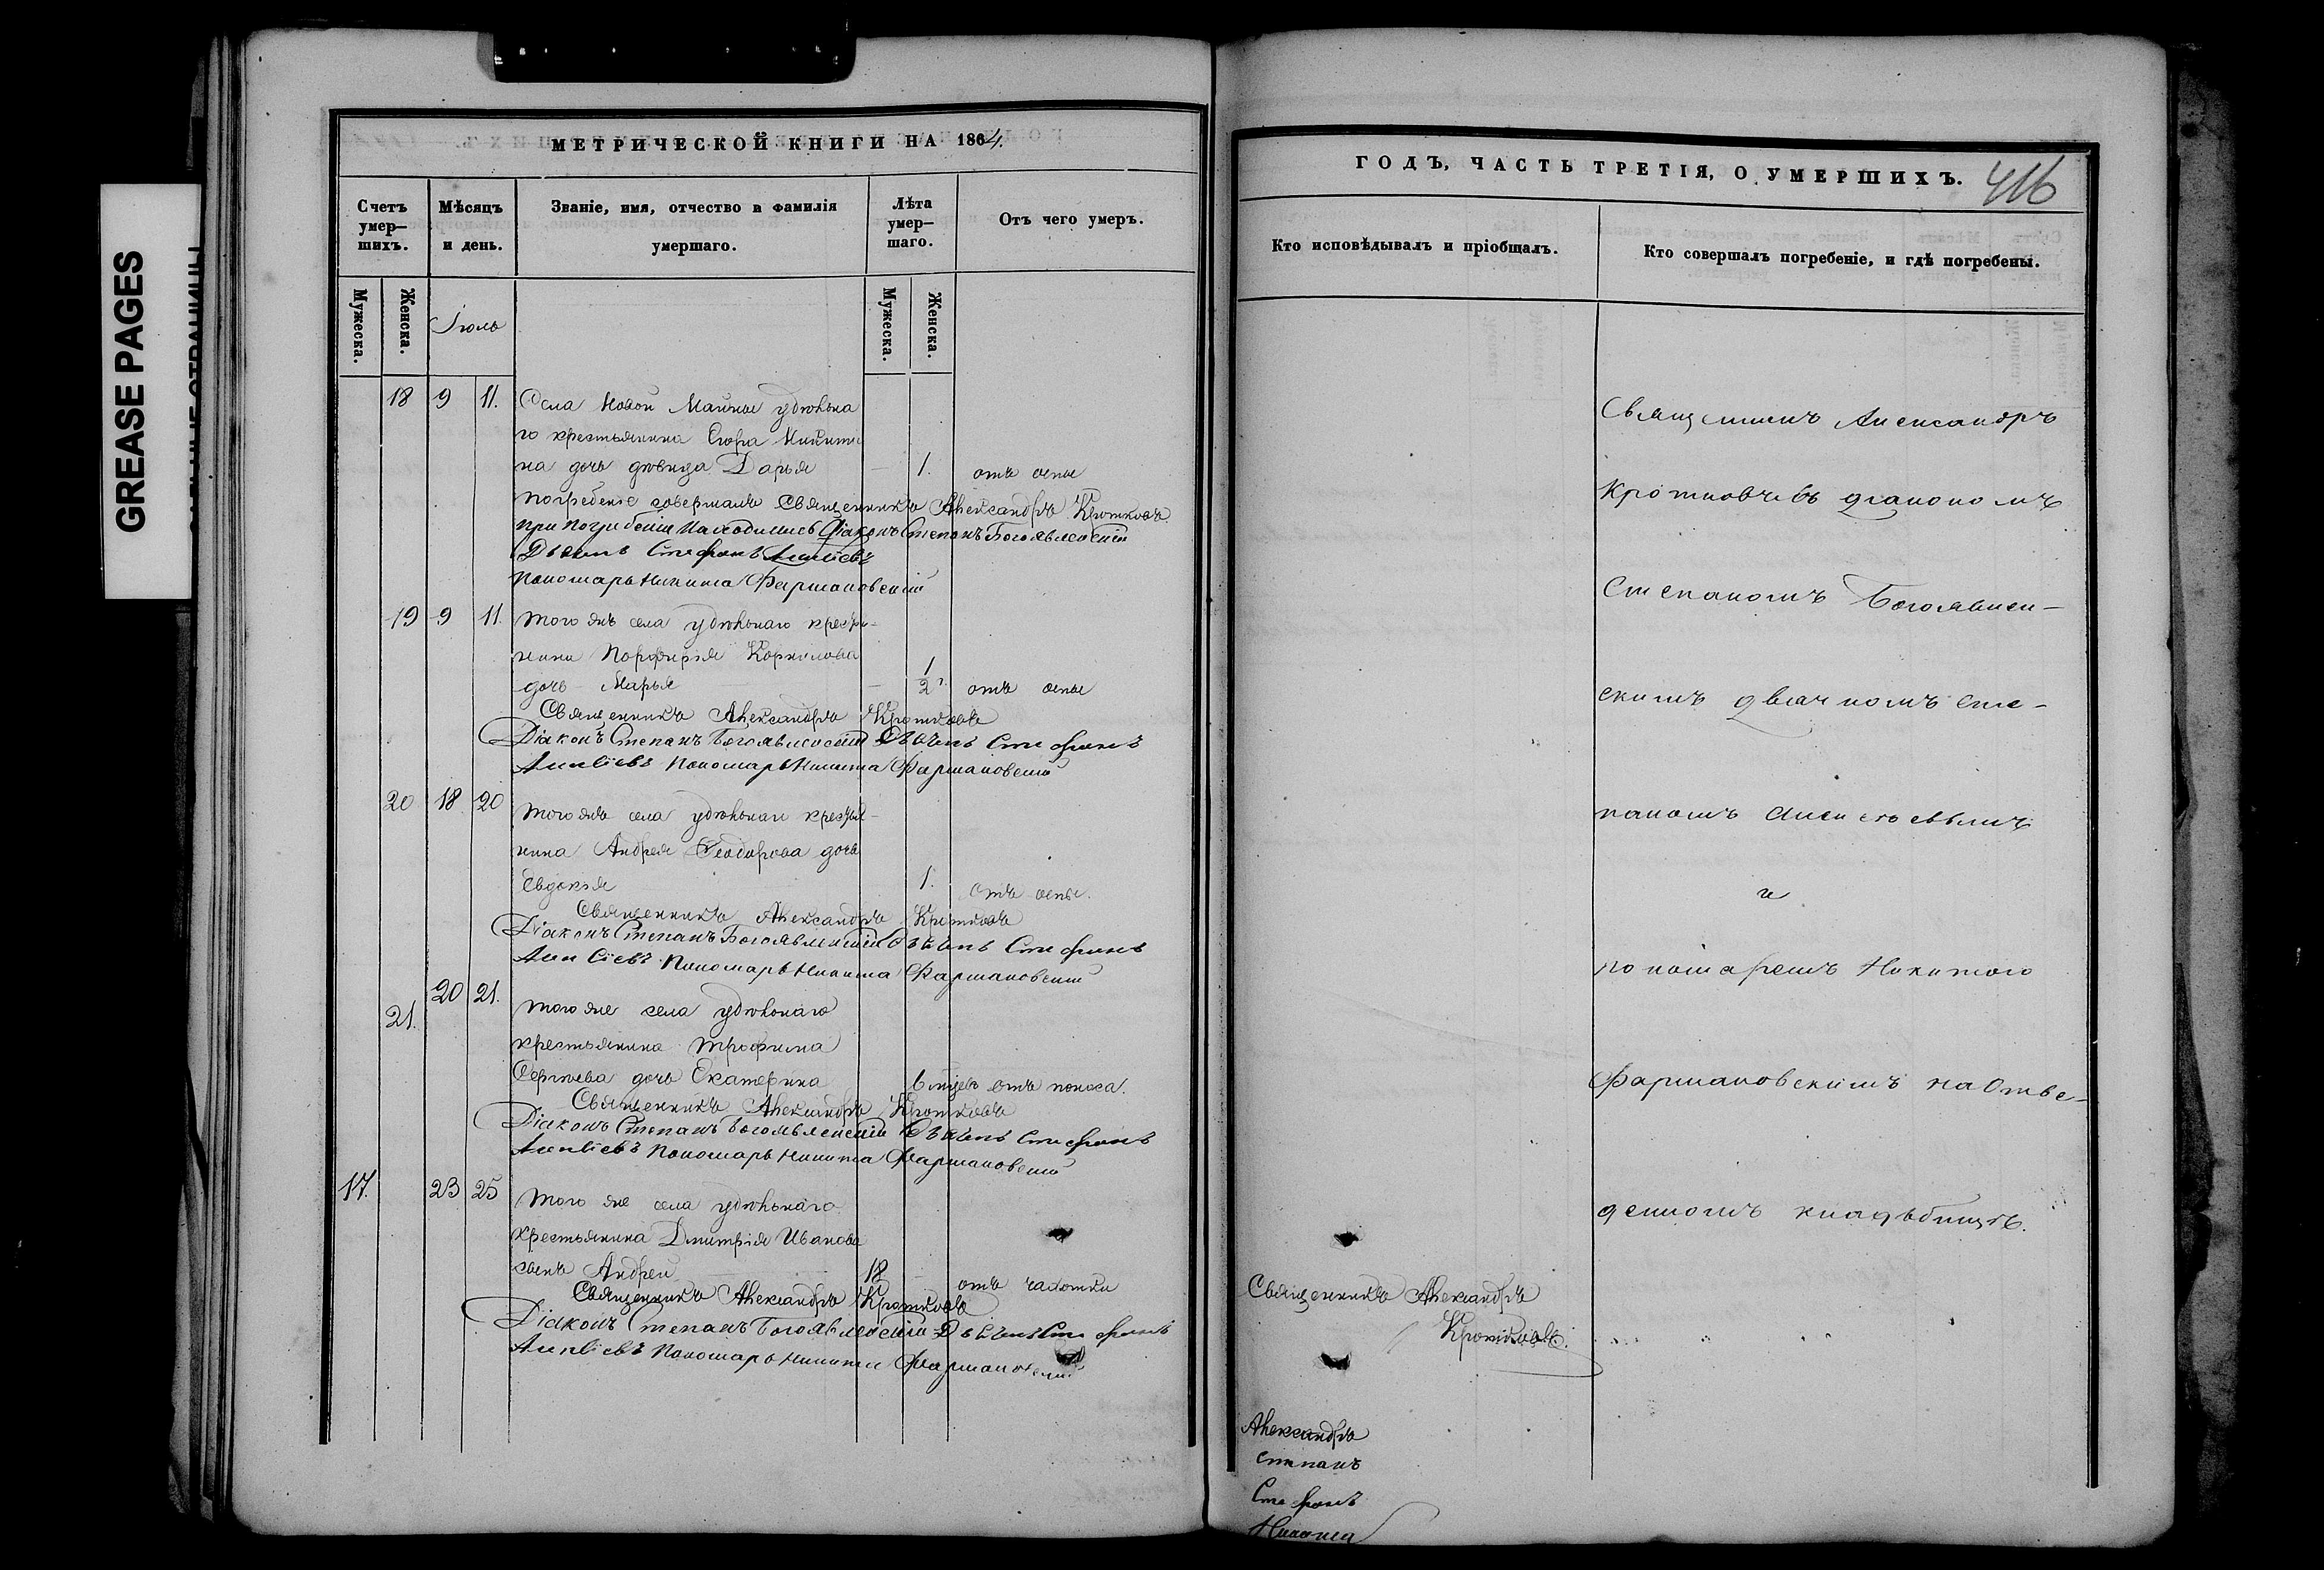 GREASE PAGES
МЕТРИЧЕСКОЙ КНИГИ НА 1864.
Счетъ умер-шихъ.
Мѣсяцъ и день.
Званіе, имя, отчество и фамилія умершаго.
Лѣта умер-шаго.
Отъ чего умеръ.
Мужеска.
Женска.
Іюль
Мужеска.
Женска.
18 9 11. Села Новой Майны удѣльна
го крестьянина Егора Никити
на дочь дѣвица Дарья — 1. отъ оспы
погребеніе совершалъ Священникъ Александръ Кротковъ
при погребеніи находились Діаконъ Степанъ Богоявленскій
Стефанъ
Пономарь Никита Фармаковскій
19 9 11. того жъ села удѣльнаго крестья-
нина Порфирія Корнилова
дочь Марья — 1/2 отъ оспы
Священникъ Александръ Кротковъ
Діаконъ Степанъ Богоявленскій Стефанъ
Пономарь Никита Фармаковскій
20 18 20 того жъ села удѣльнаго крестья-
нина Андрея Ѳеодорова дочь
Евдокія 1. отъ оспы.
Священникъ Александръ Кротковъ
Діаконъ Степанъ Богоявленскій Стефанъ
Пономарь Никита Фармаковскій
21. 20 21. того же села удѣльнаго
крестьянина Трофима
Сергѣева дочь Екатерина 6 отъ поноса.
Священникъ Александръ Кротковъ
Діаконъ Степанъ Богоявленскій Стефанъ
Пономарь Никита Фармаковскій
17. 23 25 того же села удѣльнаго
крестьянина Димитрія Иванова
сынъ Андрей 18 — отъ чахотки
Священникъ Александръ Кротковъ
Діаконъ Степанъ Богоявленскій Стефанъ
Пономарь Никита Фармаковскій
ГОДЪ, ЧАСТЬ ТРЕТІЯ, О УМЕРШИХЪ.
416
Кто исповѣдывалъ и пріобщалъ.
Кто совершалъ погребеніе, и гдѣ погребены.
Священникъ Александръ
Кротковъ съ діакономъ
Степаномъ Богоявлен-
скимъ дьячкомъ Сте-
паномъ
и
пономаремъ Никитою
Фармаковскимъ на отве-
денномъ кладьбищѣ.
Священникъ Александръ
Кротковъ.
Александръ
Степанъ
Стефанъ
Никита